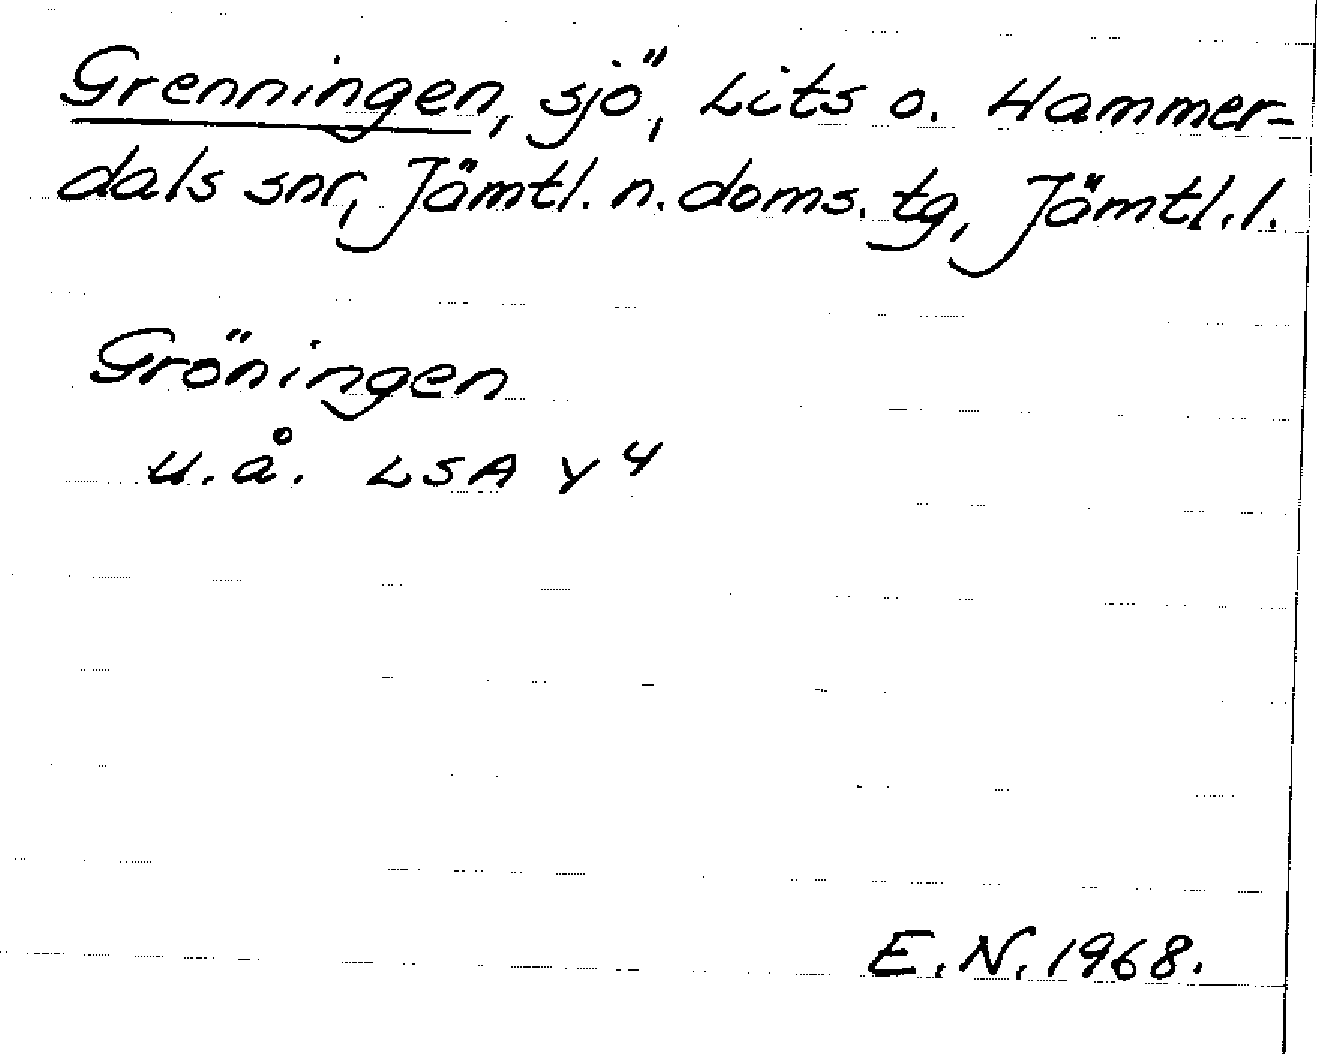 Grenningen, sjö, Lits o. Hammer-
dals snr, Jämtl. n. doms. tg, Jämtl. l.
Gröningen
u.å. LSA Y 4
E. N. 1968.